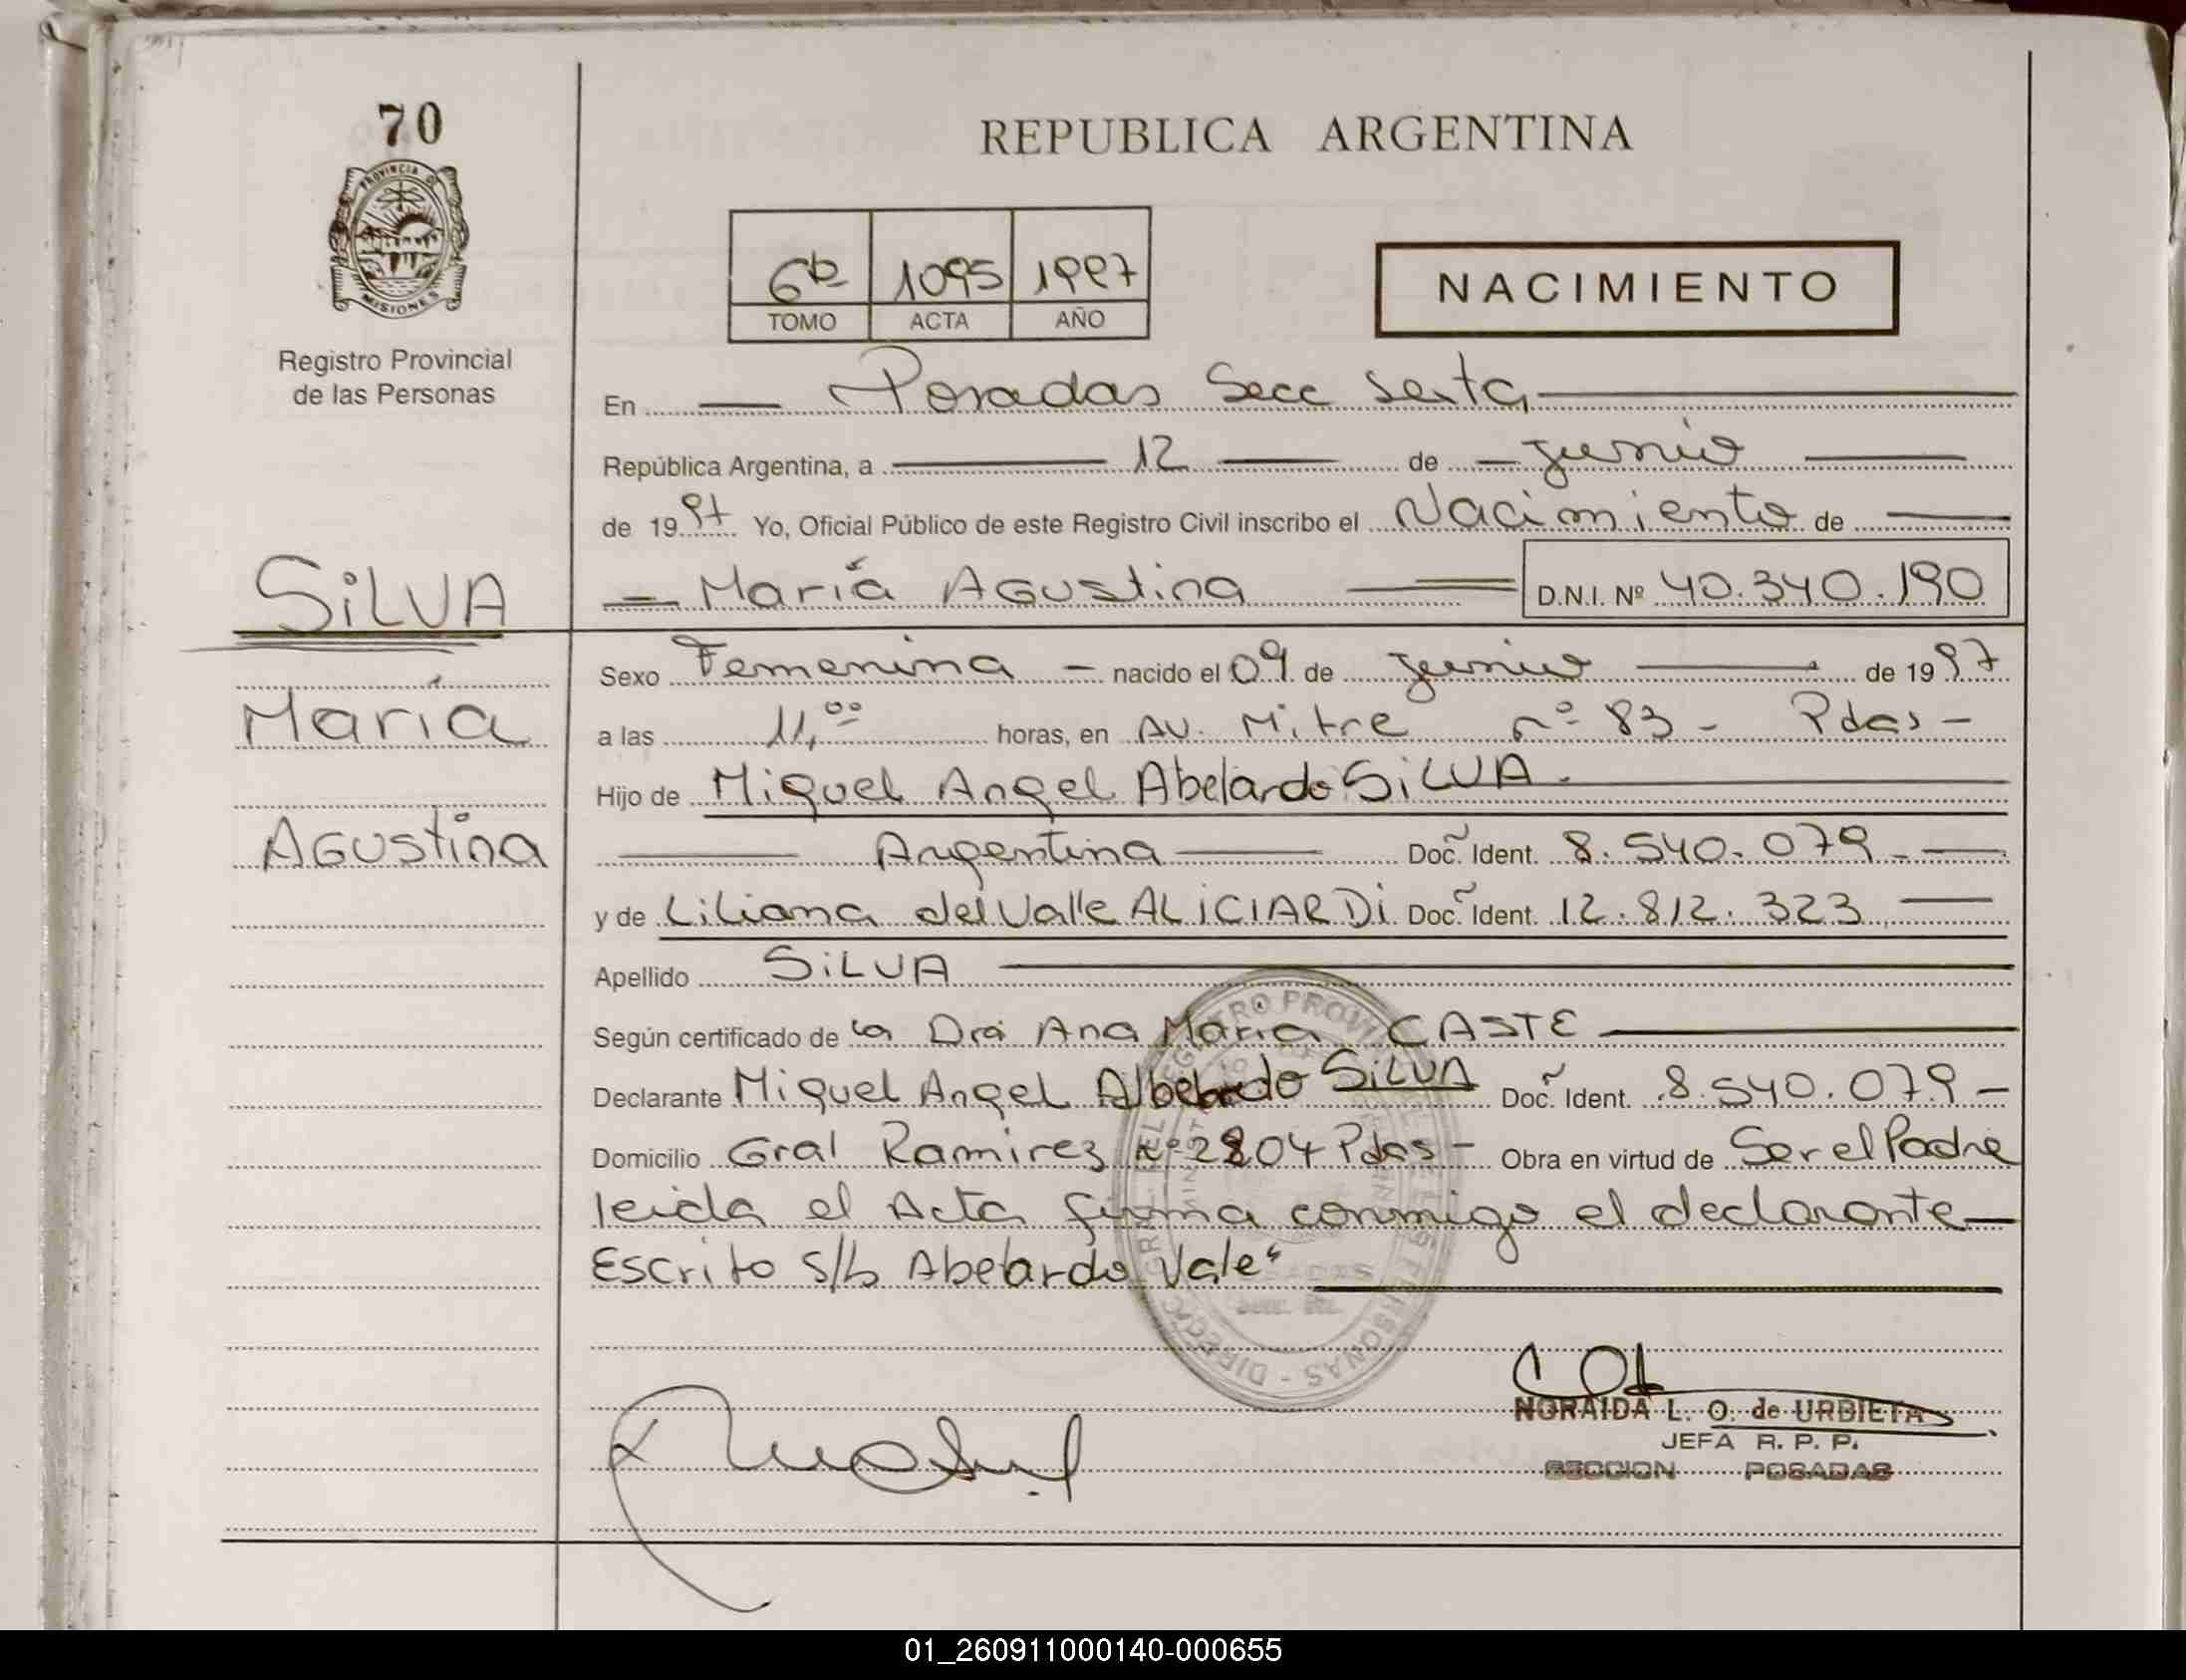 70
REPUBLICA ARGENTINA
PROVINCIA DE
MISIONES
Registro Provincial
de las Personas
6ta 1095 1997
TOMO ACTA AÑO
NACIMIENTO
En Posadas Secc Sexta
República Argentina, a 12 de junio
de 1997 Yo, Oficial Público de este Registro Civil inscribo el Nacimiento de
María Agustina D.N.I. Nº 40.340.190
SILVA
María
Agustina
Sexo Femenina - nacido el 09 de junio de 1997
a las 11,00 horas, en Av. Mitre nº 83 - Pdas -
Hijo de Miguel Angel Abelardo SILVA.
Argentina Doc. Ident. 8.540.079 -
y de Liliana del Valle ALICIARDI Doc. Ident. 12.812.323
Apellido SILVA
Según certificado de la Dra Ana María CASTE
Declarante Miguel Angel Abelardo SILVA Doc. Ident. 8.540.079 -
Domicilio Gral Ramirez nº 2804 Pdas - Obra en virtud de Ser el Padre
leida el Acta firma conmigo el declarante
Escrito s/b Abelardo Vale"
NORAIDA L. O. de URBIETA
JEFA R. P. P.
SECCION POSADAS
01_260911000140-000655